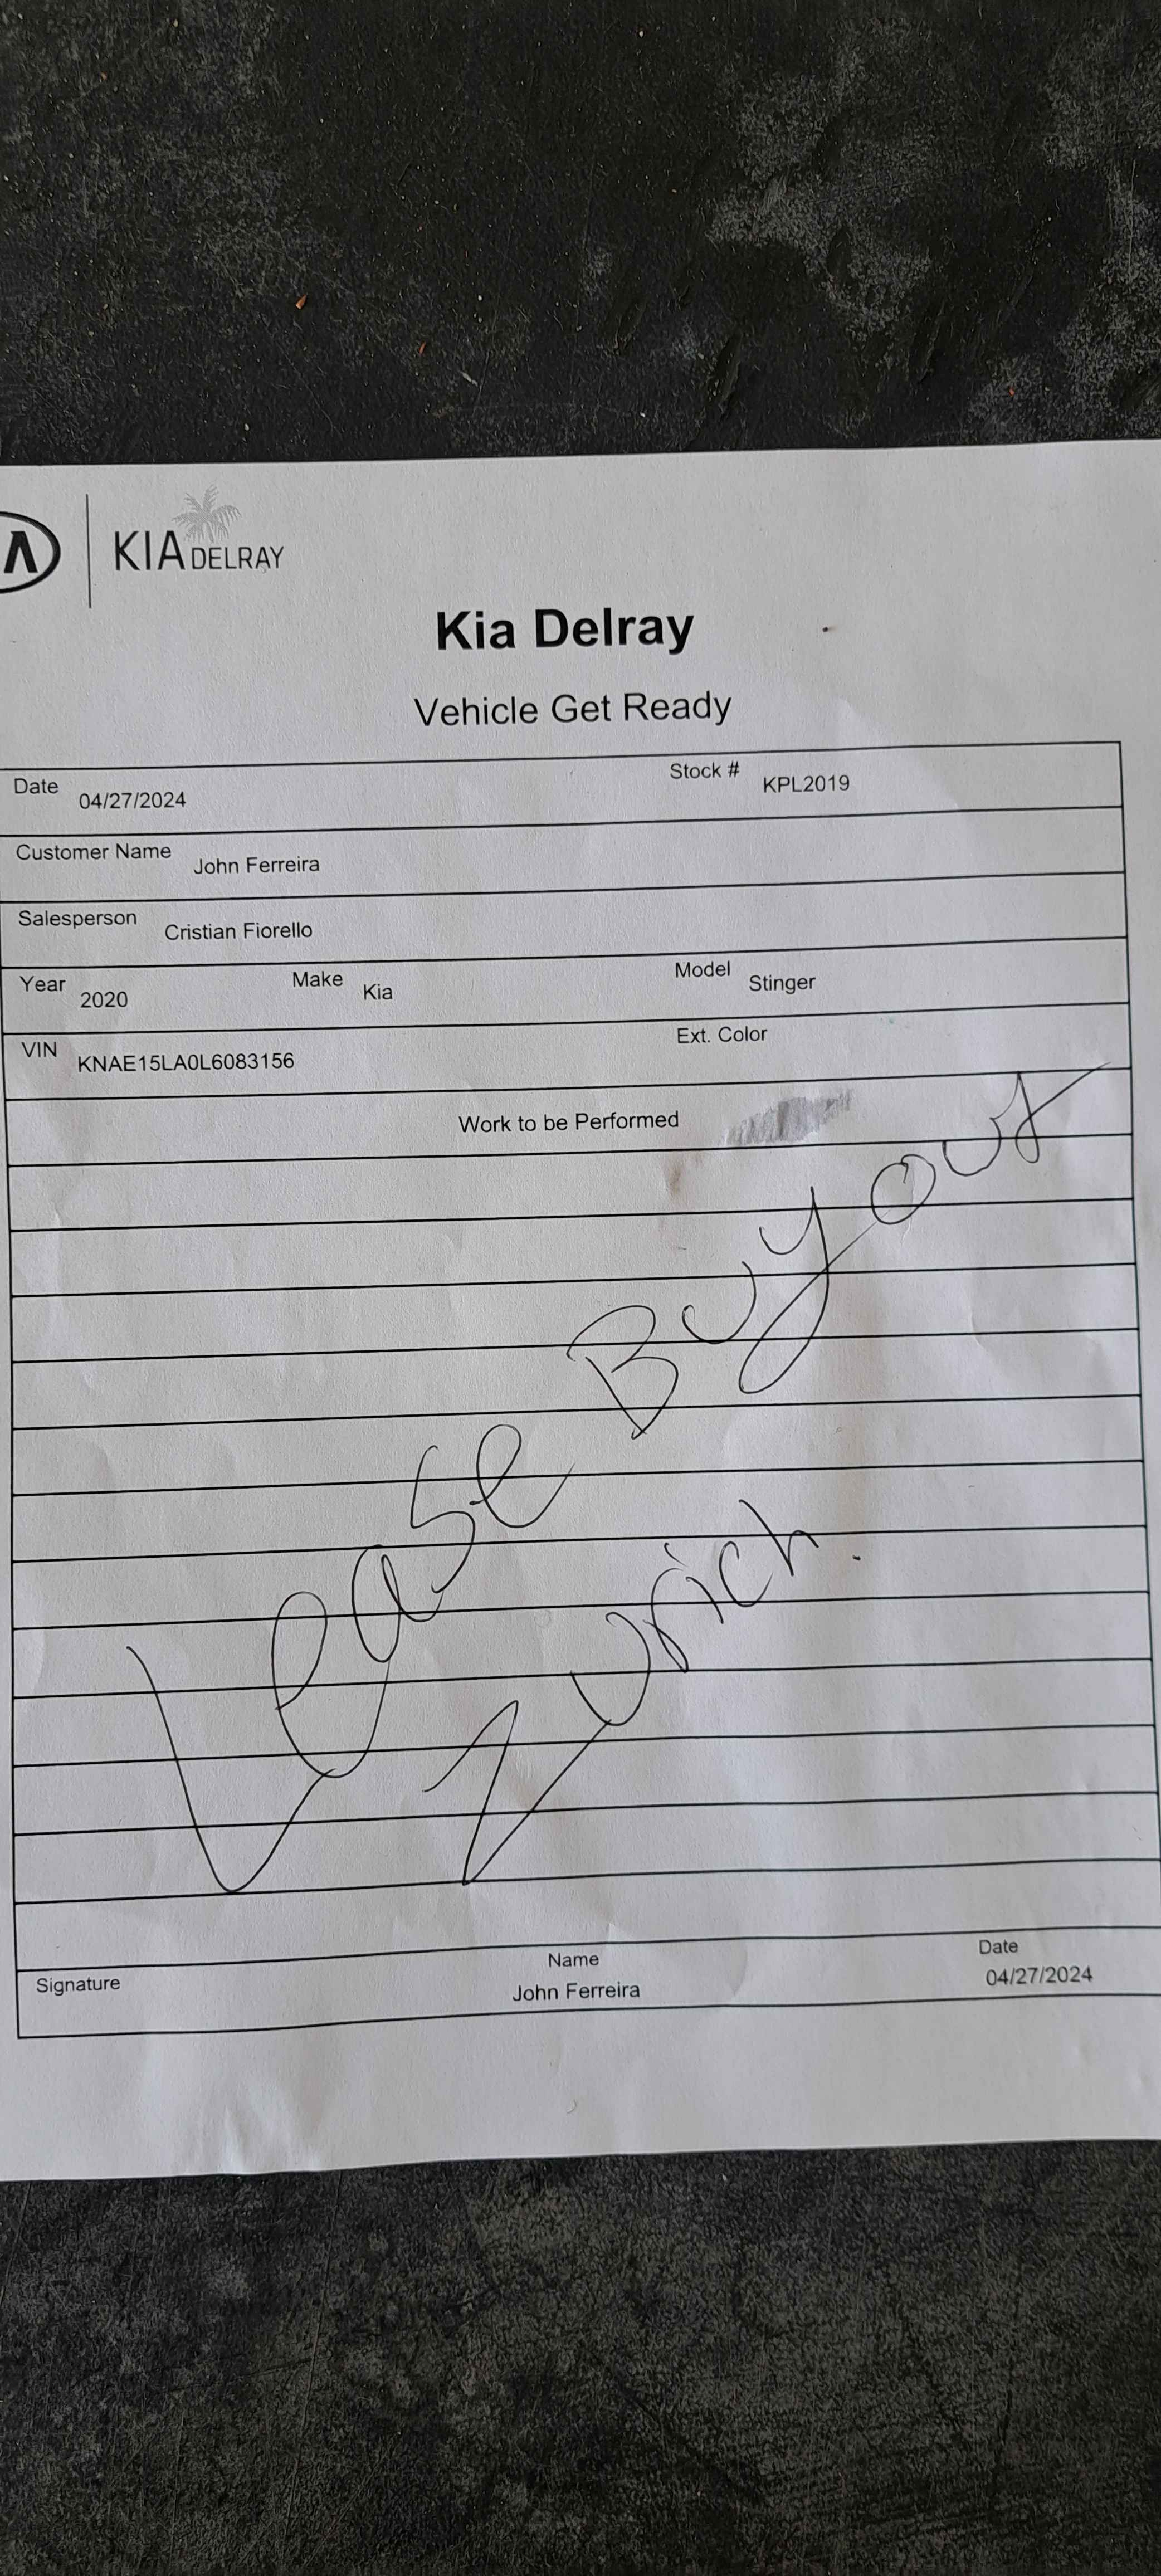 KIA DELRAY
Kia Delray
Vehicle Get Ready
Date 04/27/2024 Stock # KPL2019
Customer Name John Ferreira
Salesperson Cristian Fiorello
Year 2020 Make Kia Model Stinger
VIN KNAE15LA0L6083156 Ext. Color
Work to be Performed
Lease Buyout
Zurich.
Signature Name John Ferreira Date 04/27/2024